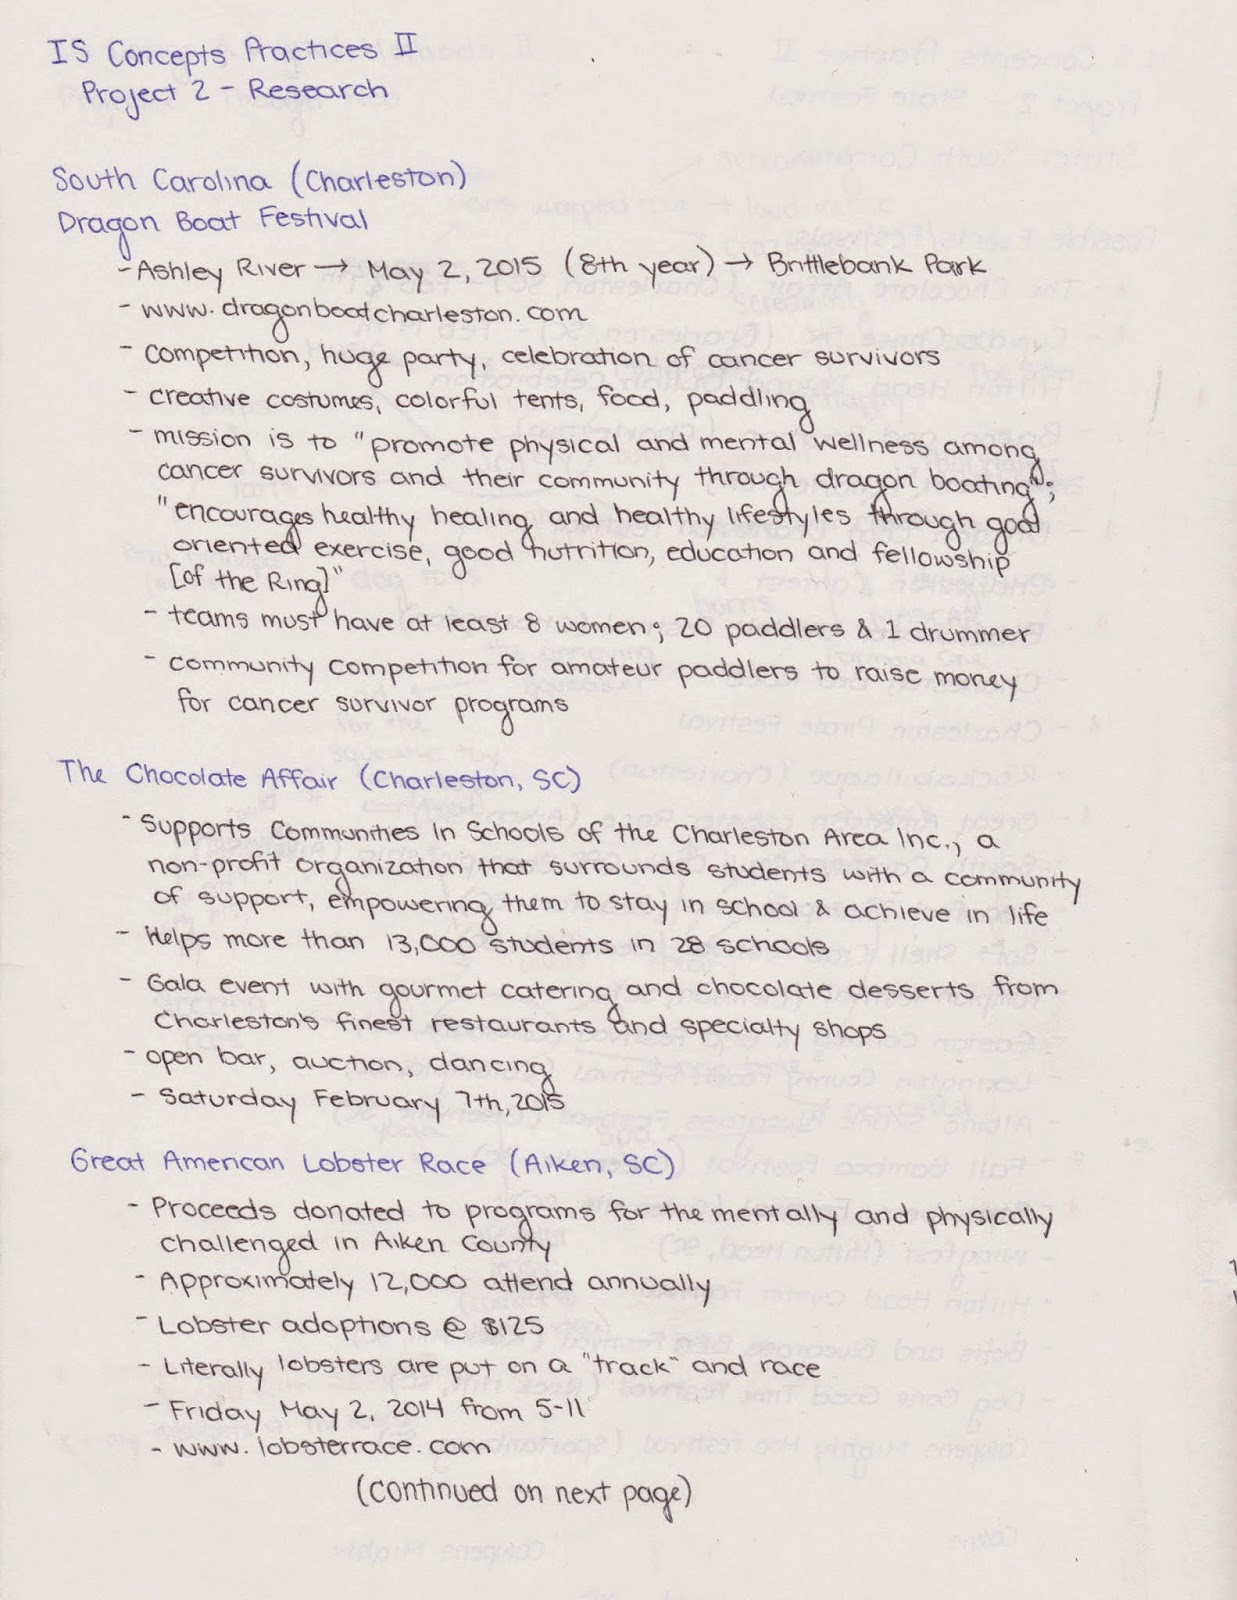 IS Concepts Practices II
Project 2 - Research
South Carolina (Charleston)
Dragon Boat Festival
- Ashley River → May 2, 2015 (8th year) → Brittlebank Park
- www.dragonboatcharleston.com
- competition, huge party, celebration of cancer survivors
- creative costumes, colorful tents, food, paddling
- mission is to "promote physical and mental wellness among
cancer survivors and their community through dragon boating";
"encourages healthy healing and healthy lifestyles through goal
oriented exercise, good nutrition, education and fellowship
[of the Ring]"
- teams must have at least 8 women; 20 paddlers & 1 drummer
- community competition for amateur paddlers to raise money
for cancer survivor programs
The Chocolate Affair (Charleston, SC)
- Supports Communities In Schools of the Charleston Area Inc., a
non-profit organization that surrounds students with a community
of support, empowering them to stay in school & achieve in life
- Helps more than 13,000 students in 28 schools
- Gala event with gourmet catering and chocolate desserts from
Charleston's finest restaurants and specialty shops
- open bar, auction, dancing
- Saturday February 7th, 2015
Great American Lobster Race (Aiken, SC)
- Proceeds donated to programs for the mentally and physically
challenged in Aiken County
- Approximately 12,000 attend annually
- Lobster adoptions @ $125
- Literally lobsters are put on a "track" and race
- Friday May 2, 2014 from 5-11
- www.lobsterrace.com
(continued on next page)